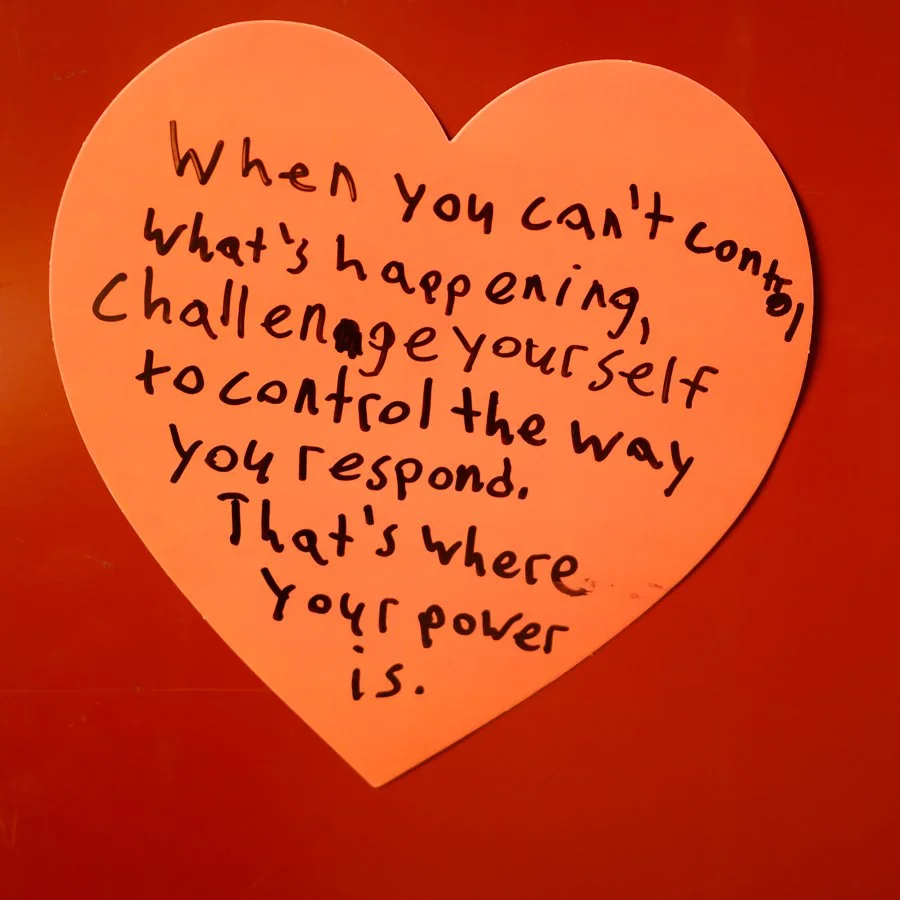 When you can't control
What's happening,
Challenge yourself
to control the way
you respond.
That's where
your power
is.